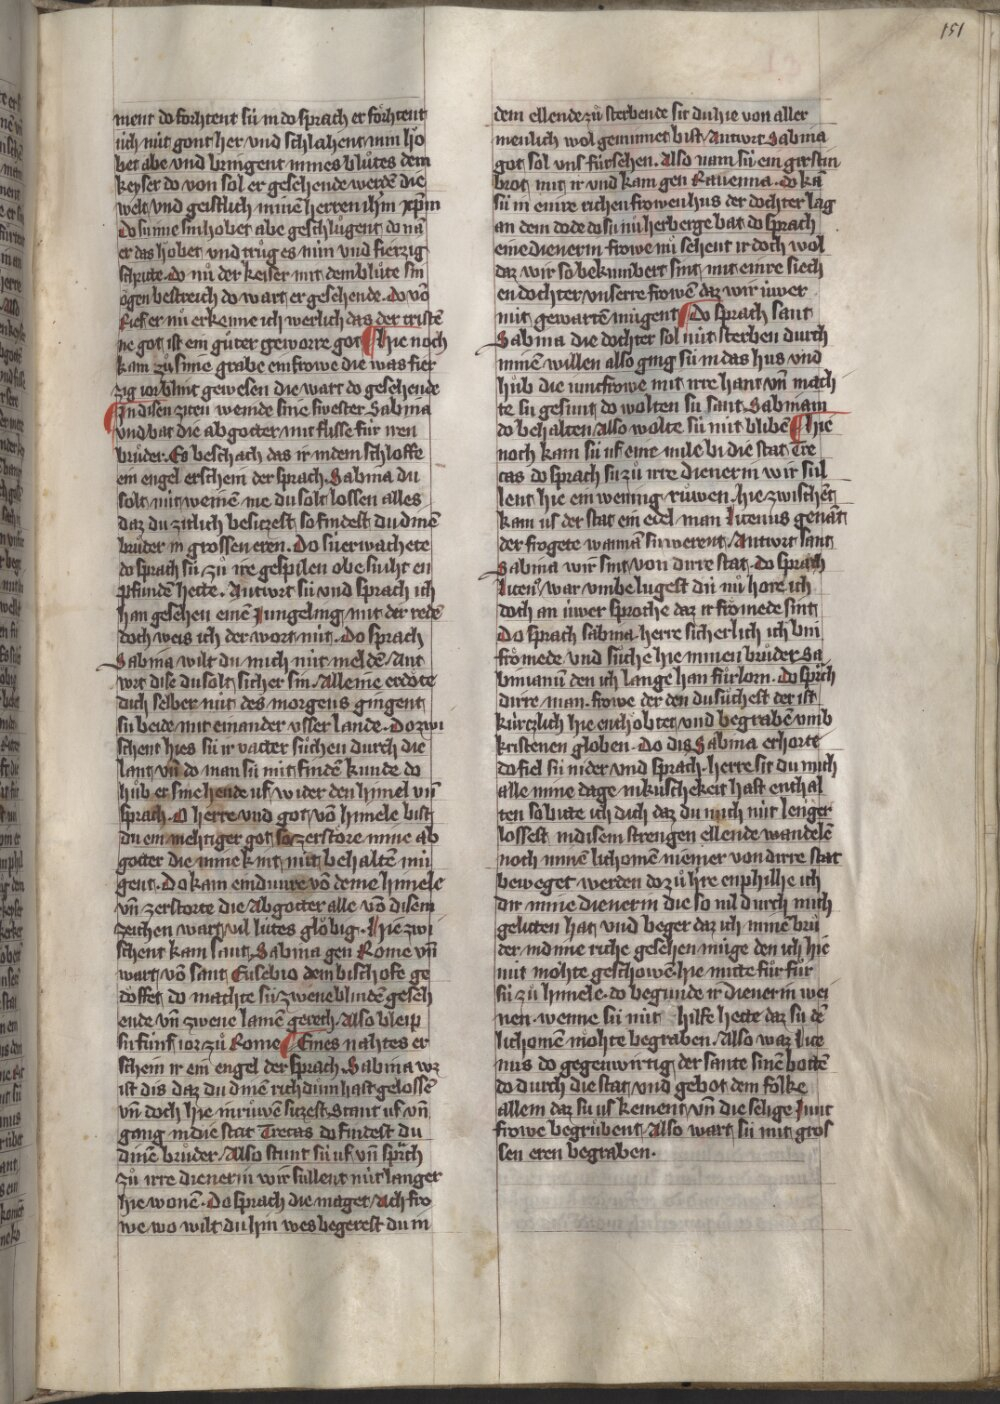 151
ment do forhtent sü in do sprach er förhtent
üch nüt gont her vnd schlahent min hö
bet abe vnd bringent mines blůtes dem
keyser do von sol er gesehende werdē die
welt vnd geistlich minē herren ihm xp̄m
Do sü ime sin höbet abe geschlůgent do nā
er das höbet vnd trůg es nün vnd fierzig
schritte. do nů der keiser mit dem blůte sin
ögen bestreich do wart er gesehende. Do vō
rief er nů erkenne ich werlich das der cristē
ne got ist ein gůter geworre got Hie noch
kam zů sime grabe ein frowe die was fier
zig ior blint gewesen die wart do gesehende
In disen ziten weinde sine swester Sabina
vnd bat die abgötter mit flisse für iren
brůder. Es beschach das ir in dem schloffe
ein engel erschein der sprach. Sabina du
solt nüt weinē me du solt lossen alles
daz du zitlich besitzest so findest du dinē
brůder in grossen eren. Do sü erwachete
do sprach sü zů ire gespilen obe sü iht en
pfundē hette. Antwrt sü vnd sprach ich
han gesehen einē Jungeling mit der redē
doch weis ich der wort nüt. Do sprach
Sabina wilt du mich nüt meldē Ant
wrt dise du solt sicher sin. Alleine erdöte
dich selber nüt des morgens gingent
sü beide mit einander vsser lande. Do zwi
schent hies sü ir vatter sůchen durch die
lant vn̄ do man sü nüt findē kunde do
hůb er sine hende uf wider den himel vn̄
sprach. O herre vnd got vō himele bist
du ein mehtiger got so zerstöre mine ab
götter die mine kint nüt behaltē mü
gent. Do kam ein dunre vō deme himele
vn̄ zerstörte die Abgötter alle vō disem
zeichen wart vil lütes glöbig. Hie zwi
schent kam sant Sabina gen Rome vn̄
wart vō sant Eusebio dem bischofe ge
döffet do machte sü zwene blindē geseh
ende vn̄ zwene lamē gerech. Also bleip
sü fünf ior zů Rome Eines nahtes er
schein ir ein engel der sprach. Sabina wz
ist dis daz du dinē richdům hast gelossē
vn̄ doch hie in růwen sitzest. Stant uf vn̄
gang in die stat Trecas do findest du
dinē brůder. Also stunt sü uf vn̄ sprach
zů irre dienerin wir süllent nüt langer
hie wonē. Do sprach die maget. Ach fro
we wo wilt du hin wes begerest du in
dem ellende zů sterbende sit du hie von aller
menlich wol geminnet bist. Antwrt Sabina
got sol vns fürsehen. Also nam sü ein girstin
brot mit ir vnd kam gen Rauenna. do kā
sü in einre richen frowen hus der dochter lag
an dem dode do sü nů herberge bat do sprach
eine dienerin frowe nů sehent ir doch wol
daz wir so bekumbert sint mit einre siech
en dochter vnserre frowē daz wir üwer
nüt gewartē mügent Do sprach sant
Sabina die dochter sol nüt sterben durch
minē willen also ging sü in das hus vnd
hůb die iuncfrowe mit irre hant vn̄ mach
te sü gesunt do wolten sü sant Sabinam
do behalten. Also wolte sü nüt blibē Hie
noch kam sü uf eine mile bi die stat Tre
cas do sprach sü zů irre dienerin wir sül
lent hie ein wening růwen. hie zwischēt
kam us der stat ein edel man Licenus genāt
der frogete wannā sü werent. Antwrt sant
Sabina wir sint von dirre stat. do sprach
Licenꝰ war vmbe lugest du nů höre ich
doch an üwer sproche daz ir frömede sint
Do sprach sabina herre sicherlich ich bin
frömede vnd sůche hie minen brůder Sa
binianū den ich lange han fürlorn. do sprach
dirre man. frowe der den du sůchest der ist
kürtzlich hie enthöbtet vnd begrabē vmb
kristenen globen. Do dis Sabina erhorte
do fiel sü nider vnd sprach. herre sit du mich
alle mine dage in küschekeit hast enthal
ten so bitte ich dich daz du mich nüt lenger
lossest in disem strengen ellende wandelē
noch minē lichomē niemer von dirre stat
beweget werden do zů hie enphilhe ich
dir mine dienerin die so vil durch mich
gelitten hat vnd beger daz ich minē brů
der in dinie riche gesehen müge den ich hie
nüt möhte geschowē hie mitte fůr für
sü zů himele. do begunde ir dienerin wei
nen. wenne sü nüt hilfe hette daz sü dē
lichomē möhte begraben. Also waz lice
nus do gegenwirtig der sante sinē bottē
do durch die stat vnd gebot dem folke
allem daz sü us kement vn̄ die selige Junc
frowe begrůbent. Also wart sü mit gros
sen eren begraben.